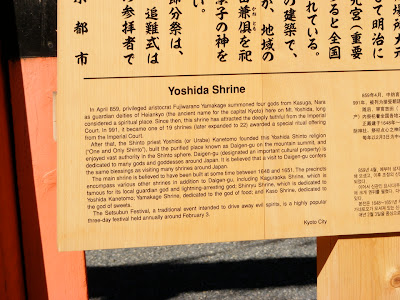 場所大元
て明治に
元宮（重要
ると全国
れている。
の建築で、
が、地域の
田兼倶を祀
い。
菓子の神を
節分祭は、
追難式は
の参拝者で
京都市
Yoshida Shrine
In April 859, privileged aristocrat Fujiwarano Yamakage summoned four gods from Kasuga, Nara
as guardian deities of Heiankyo (the ancient name for the capital Kyoto) here on Mt. Yoshida, long
considered a spiritual place. Since then, this shrine has attracted the deeply faithful from the Imperial
Court. In 991, it became one of 19 shrines (later expanded to 22) awarded a special ritual offering
from the Imperial Court.
After that, the Shinto priest Yoshida (or Urabe) Kanetomo founded this Yoshida Shinto religion
("One and Only Shinto"), built the purified place known as Daigen-gu on the mountain summit, and
enjoyed vast authority in the Shinto sphere. Daigen-gu (designated an important cultural property) is
dedicated to many gods and goddesses around Japan. It is believed that a visit to Daigen-gu confers
the same blessings as visiting many shrines around Japan.
The main shrine is believed to have been built at some time between 1648 and 1651. The precincts
encompass various other shrines in addition to Daigen-gu, including Kaguraoka Shrine, which is
famous for its local guardian god and lightning-arresting god; Shinryu Shrine, which is dedicated to
Yoshida Kanetomo; Yamakage Shrine, dedicated to the god of food; and Kaso Shrine, dedicated to
the god of sweets.
The Setsubun Festival, a traditional event intended to drive away evil spirits, is a highly popular
three-day festival held annually around February 3.
Kyoto City